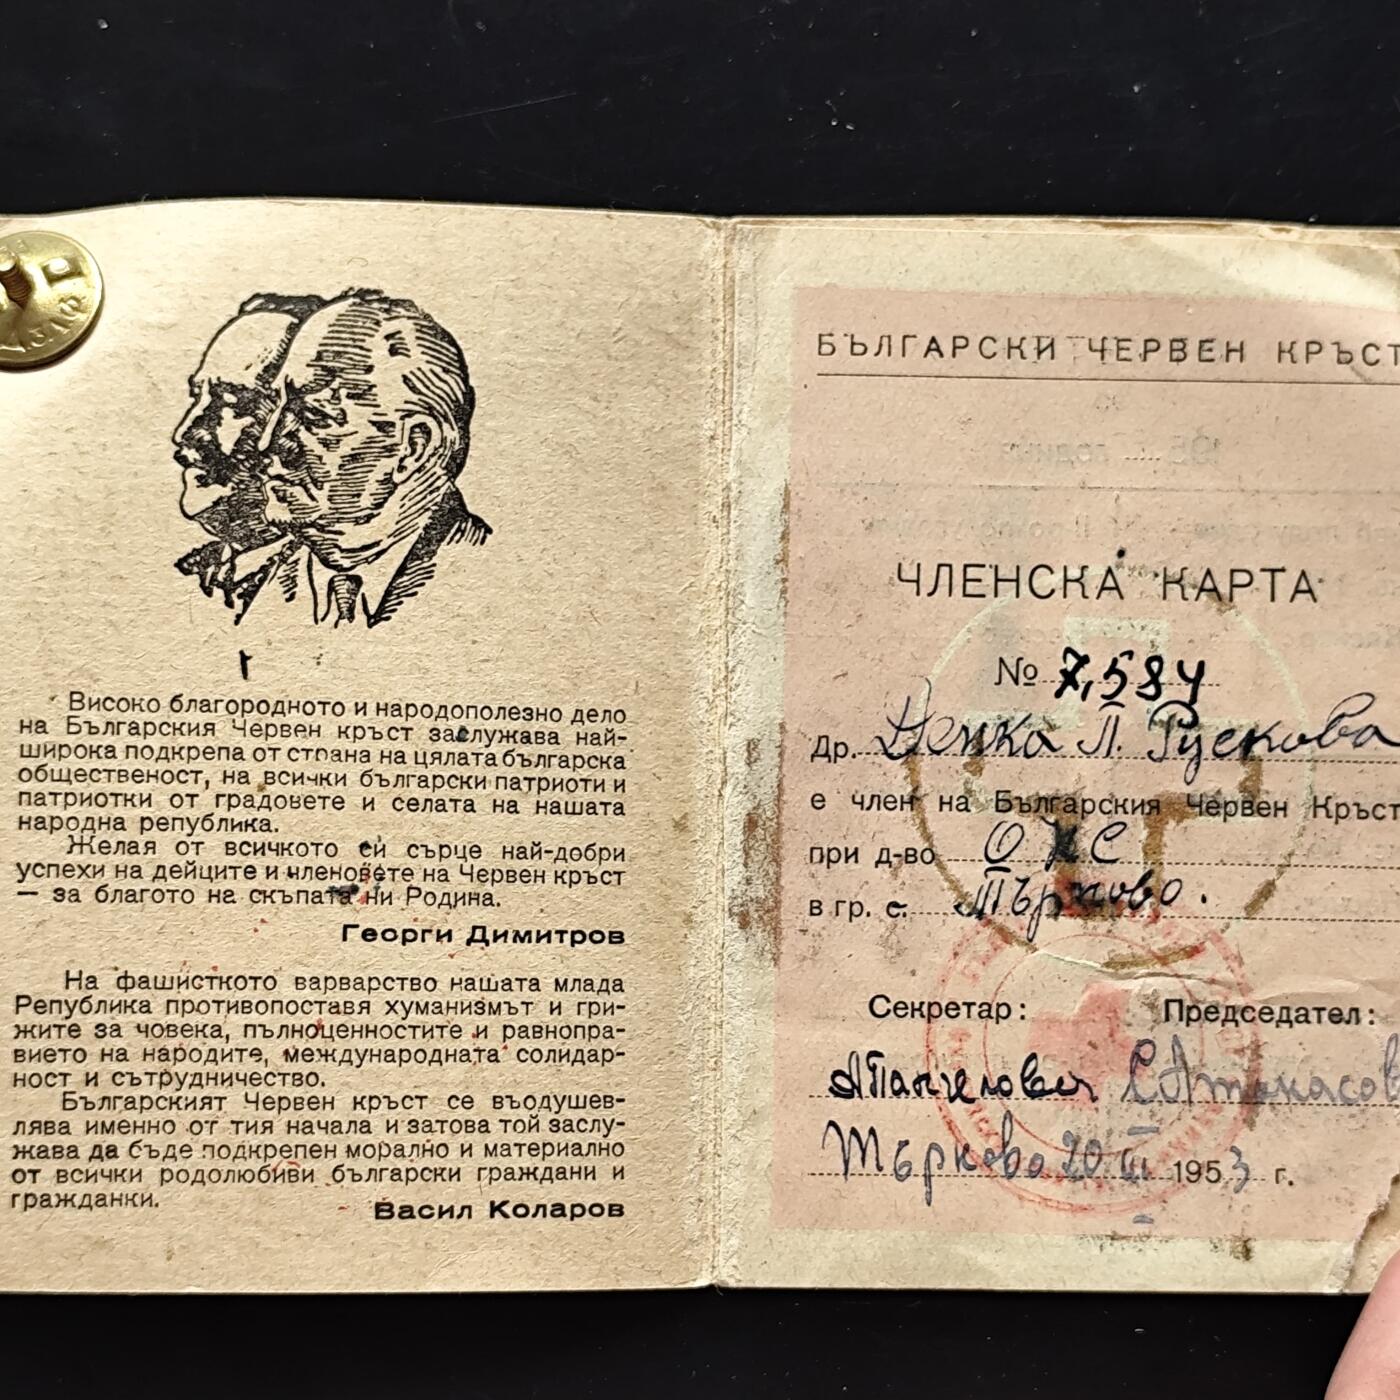 Високо благородното и народополезно дело
на Българския Червен кръст заслужава най-
широка подкрепа от страна на цялата българска
общественост, на всички български патриоти и
патриотки от градовете и селата на нашата
народна република.
Желая от всичкото си сърце най-добри
успехи на дейците и членовете на Червен кръст
— за благото на скъпата ни Родина.
Георги Димитров
На фашисткото варварство нашата млада
Република противопоставя хуманизмът и гри-
жите за човека, пълноценностите и равнопра-
вието на народите, международната солидар-
ност и сътрудничество.
Българският Червен кръст се въодушев-
лява именно от тия начала и затова той заслу-
жава да бъде подкрепен морално и материално
от всички родолюбиви български граждани и
гражданки.
Васил Коларов
БЪЛГАРСКИ ЧЕРВЕН КРЪСТ
ЧЛЕНСКА КАРТА
№ 7,584
др. Ненка П. Рускова
е член на Българския Червен Кръст
при д-во ОКС
в гр. с. Търново.
Секретар: Председател:
Търново 20 III 1953 г.